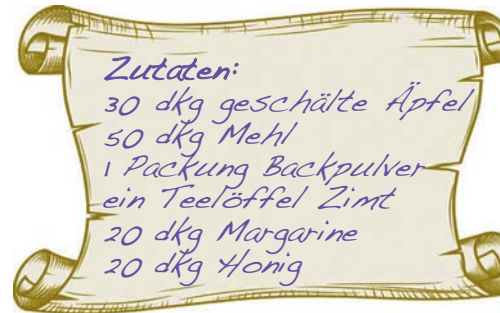 Zutaten:
30 dkg geschälte Äpfel
50 dkg Mehl
1 Packung Backpulver
ein Teelöffel Zimt
20 dkg Margarine
20 dkg Honig